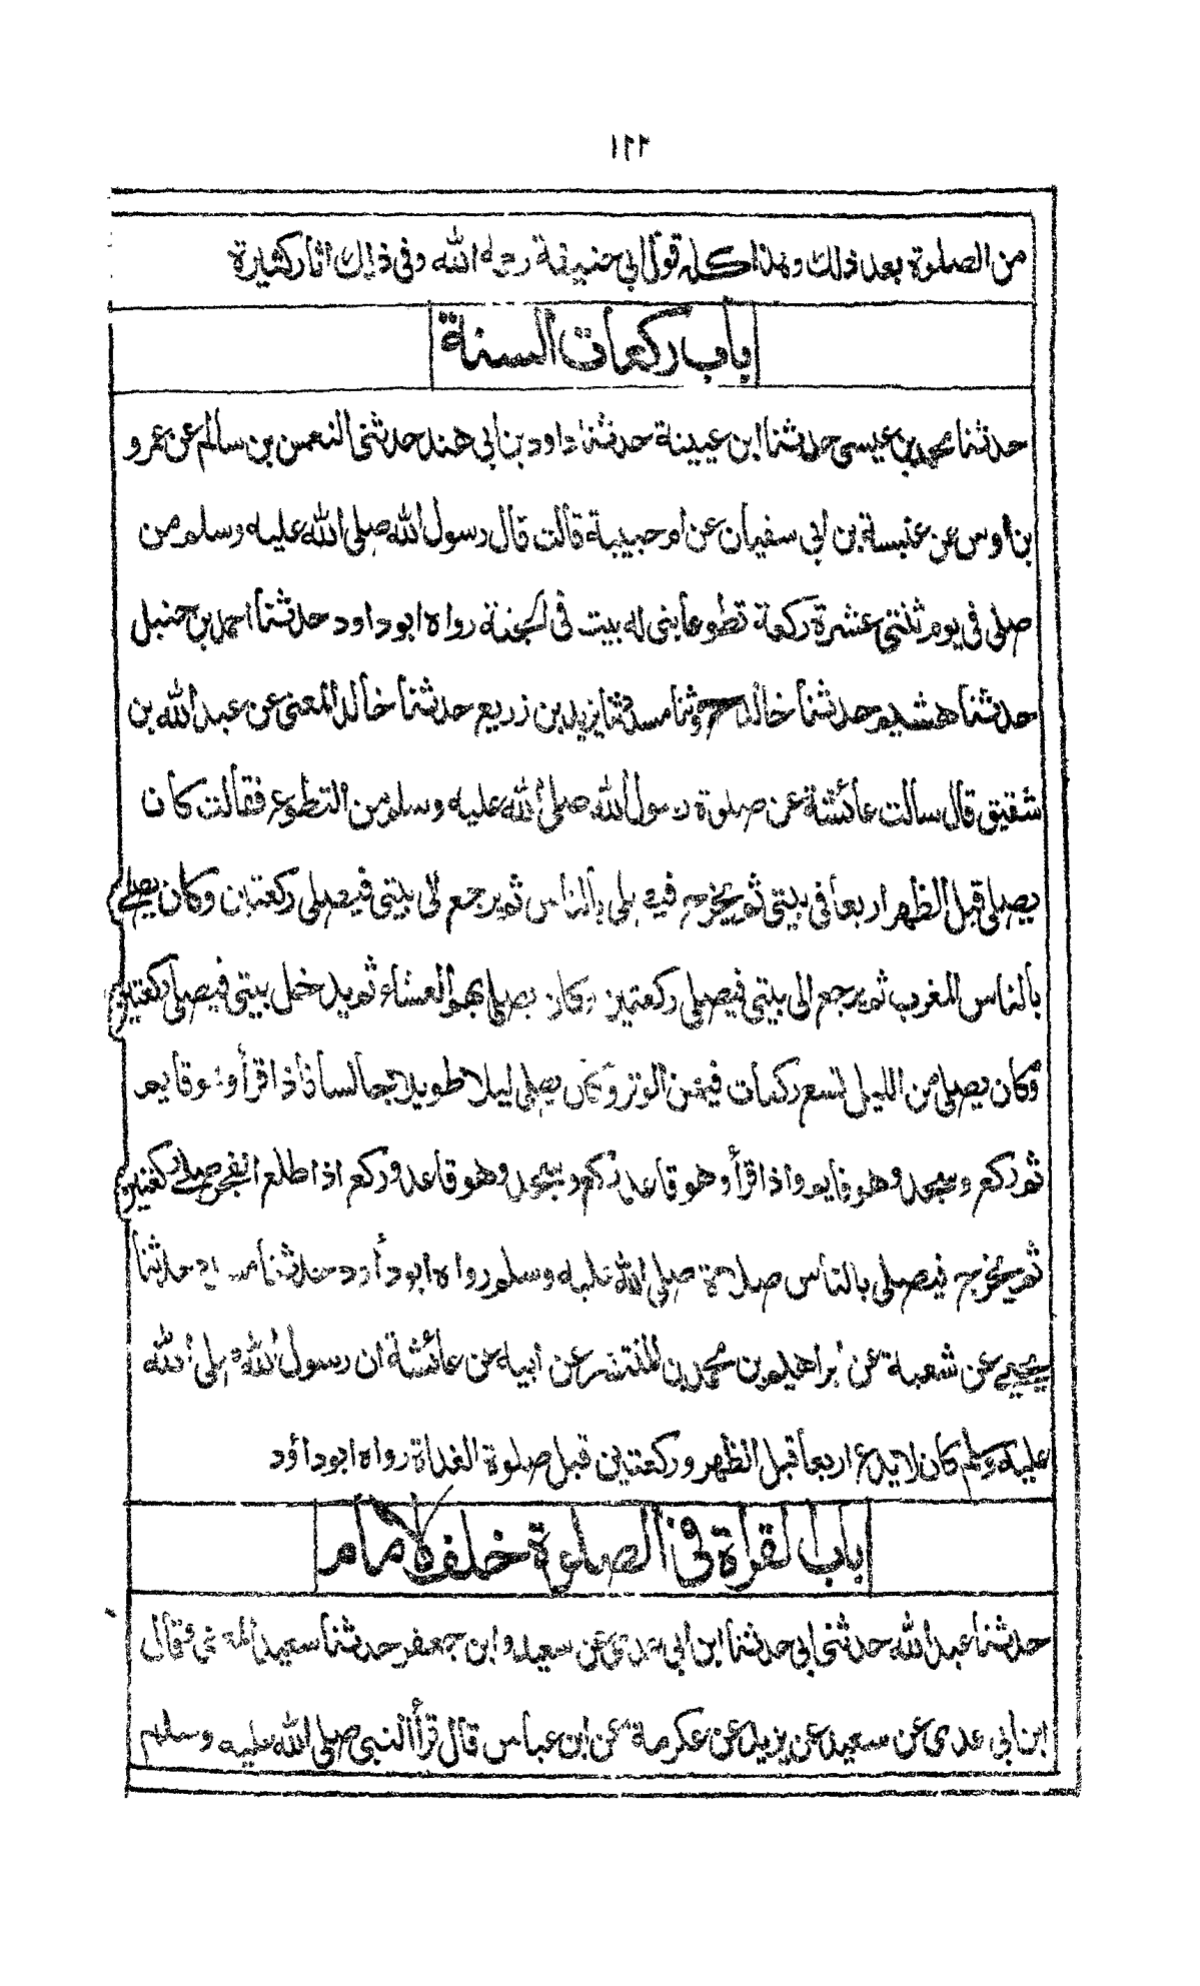 ١٢٢
من الصلوة بعد ذلك وهذا كله قول ابي حنيفة رحمه الله وفي ذلك اثار كثيرة
باب ركعات السنة
حدثنا محمد بن عيسى حدثنا ابن عيينة حدثنا داود بن ابي هند حدثني النعمن بن سالم عن عمرو
بن اوس عن عنبسة بن ابي سفيان عن ام حبيبة قالت قال رسول الله صلى الله عليه وسلم من
صلى في يوم ثنتي عشرة ركعة تطوعا بنى له بيت في الجنة رواه ابوداود حدثنا احمد بن حنبل
حدثنا هشيم حدثنا خالد ح وثنا مسدد ثنا يزيد بن زريع حدثنا خالد المعنى عن عبد الله بن
شقيق قال سالت عائشة عن صلوة رسول الله صلى الله عليه وسلم من التطوع فقالت كان
يصلى قبل الظهر اربعا في بيتي ثم يخرج فيصلى بالناس ثم يرجع الى بيتي فيصلى ركعتين وكان يصلى
بالناس المغرب ثم يرجع الى بيتي فيصلى ركعتين وكان يصلى بهم العشاء ثم يدخل بيتي فيصلى ركعتين
وكان يصلى من الليل تسع ركعات فيهن الوتر وكان يصلى ليلا طويلا جالسا فاذا قرأ وهو قايم
ثم ركع وسجد وهو قايم واذا قرأ وهو قاعد ركع وسجد وهو قاعد وركع اذا طلع الفجر صلى ركعتين
ثم يخرج فيصلى بالناس صلاة صلى الله عليه وسلم رواه ابوداود حدثنا مسدد حدثنا
يحيى عن شعبة عن ابراهيم بن محمد بن المنتشر عن ابيه عن عائشة ان رسول الله صلى الله
عليه وسلم كان لا يدع اربعا قبل الظهر وركعتين قبل صلوة الغداة رواه ابوداؤد
باب القراة في الصلوة خلف الامام
حدثنا عبد الله حدثني ابي حدثنا ابن ابي عدي عن سعيد وابن جعفر حدثنا سعيد المعنى وقال
ابن ابي عدى عن سعيد عن يزيد عن عكرمة عن ابن عباس قال قرأ النبي صلى الله عليه وسلم